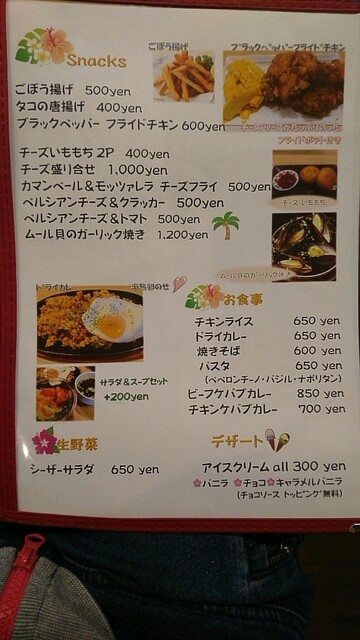 Snacks
ごぼう揚げ
ブラックペッパーフライドチキン
ごぼう揚げ 500yen
タコの唐揚げ 400yen
ブラックペッパー フライドチキン 600yen
フライドポテト付き
チーズいももち 2P 400yen
チーズ盛り合せ 1.000yen
カマンベール&モッツァレラ チーズフライ 500yen
ペルシアンチーズ&クラッカー 500yen
ペルシアンチーズ&トマト 500yen
ムール貝のガーリック焼き 1,200yen
チーズいももち
ムール貝のガーリック焼き
ドライカレー
お食事
チキンライス 650 yen
ドライカレー 650 yen
焼きそば 600 yen
パスタ 650 yen
(ペペロンチーノ・バジル・ナポリタン)
ビーフケバブカレー 850 yen
チキンケバブカレー 700 yen
サラダ&スープセット
+200yen
生野菜
シーザーサラダ 650 yen
デザート
アイスクリーム all 300 yen
バニラ チョコ キャラメルバニラ
(チョコソース トッピング無料)